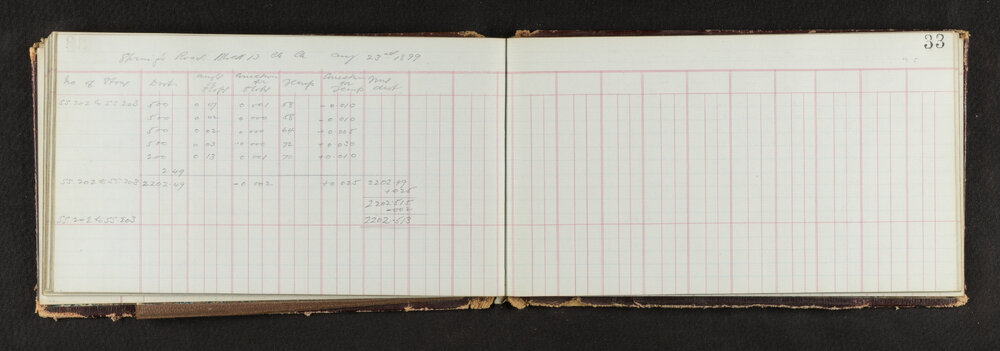 33
Spring's Road. Block 13 Ch Ch Aug 23rd 1899
No of Stone Dist Angle of Slope Correction for Slope Temp Correction for Temp True dist
SS 202 to SS 203 500 0 07 0 001 58 -0 010
500 0 02 0 000 58 -0 010
500 0 02 0 000 64 +0 005
500 0 03 0 000 72 +0 030
200 0 13 0 001 70 +0 010
2.49
SS 202 to SS 203 2202.49 -0 002 +0 025 2202.49
+025
2202.515
-002
SS 202 to SS 203 2202.513